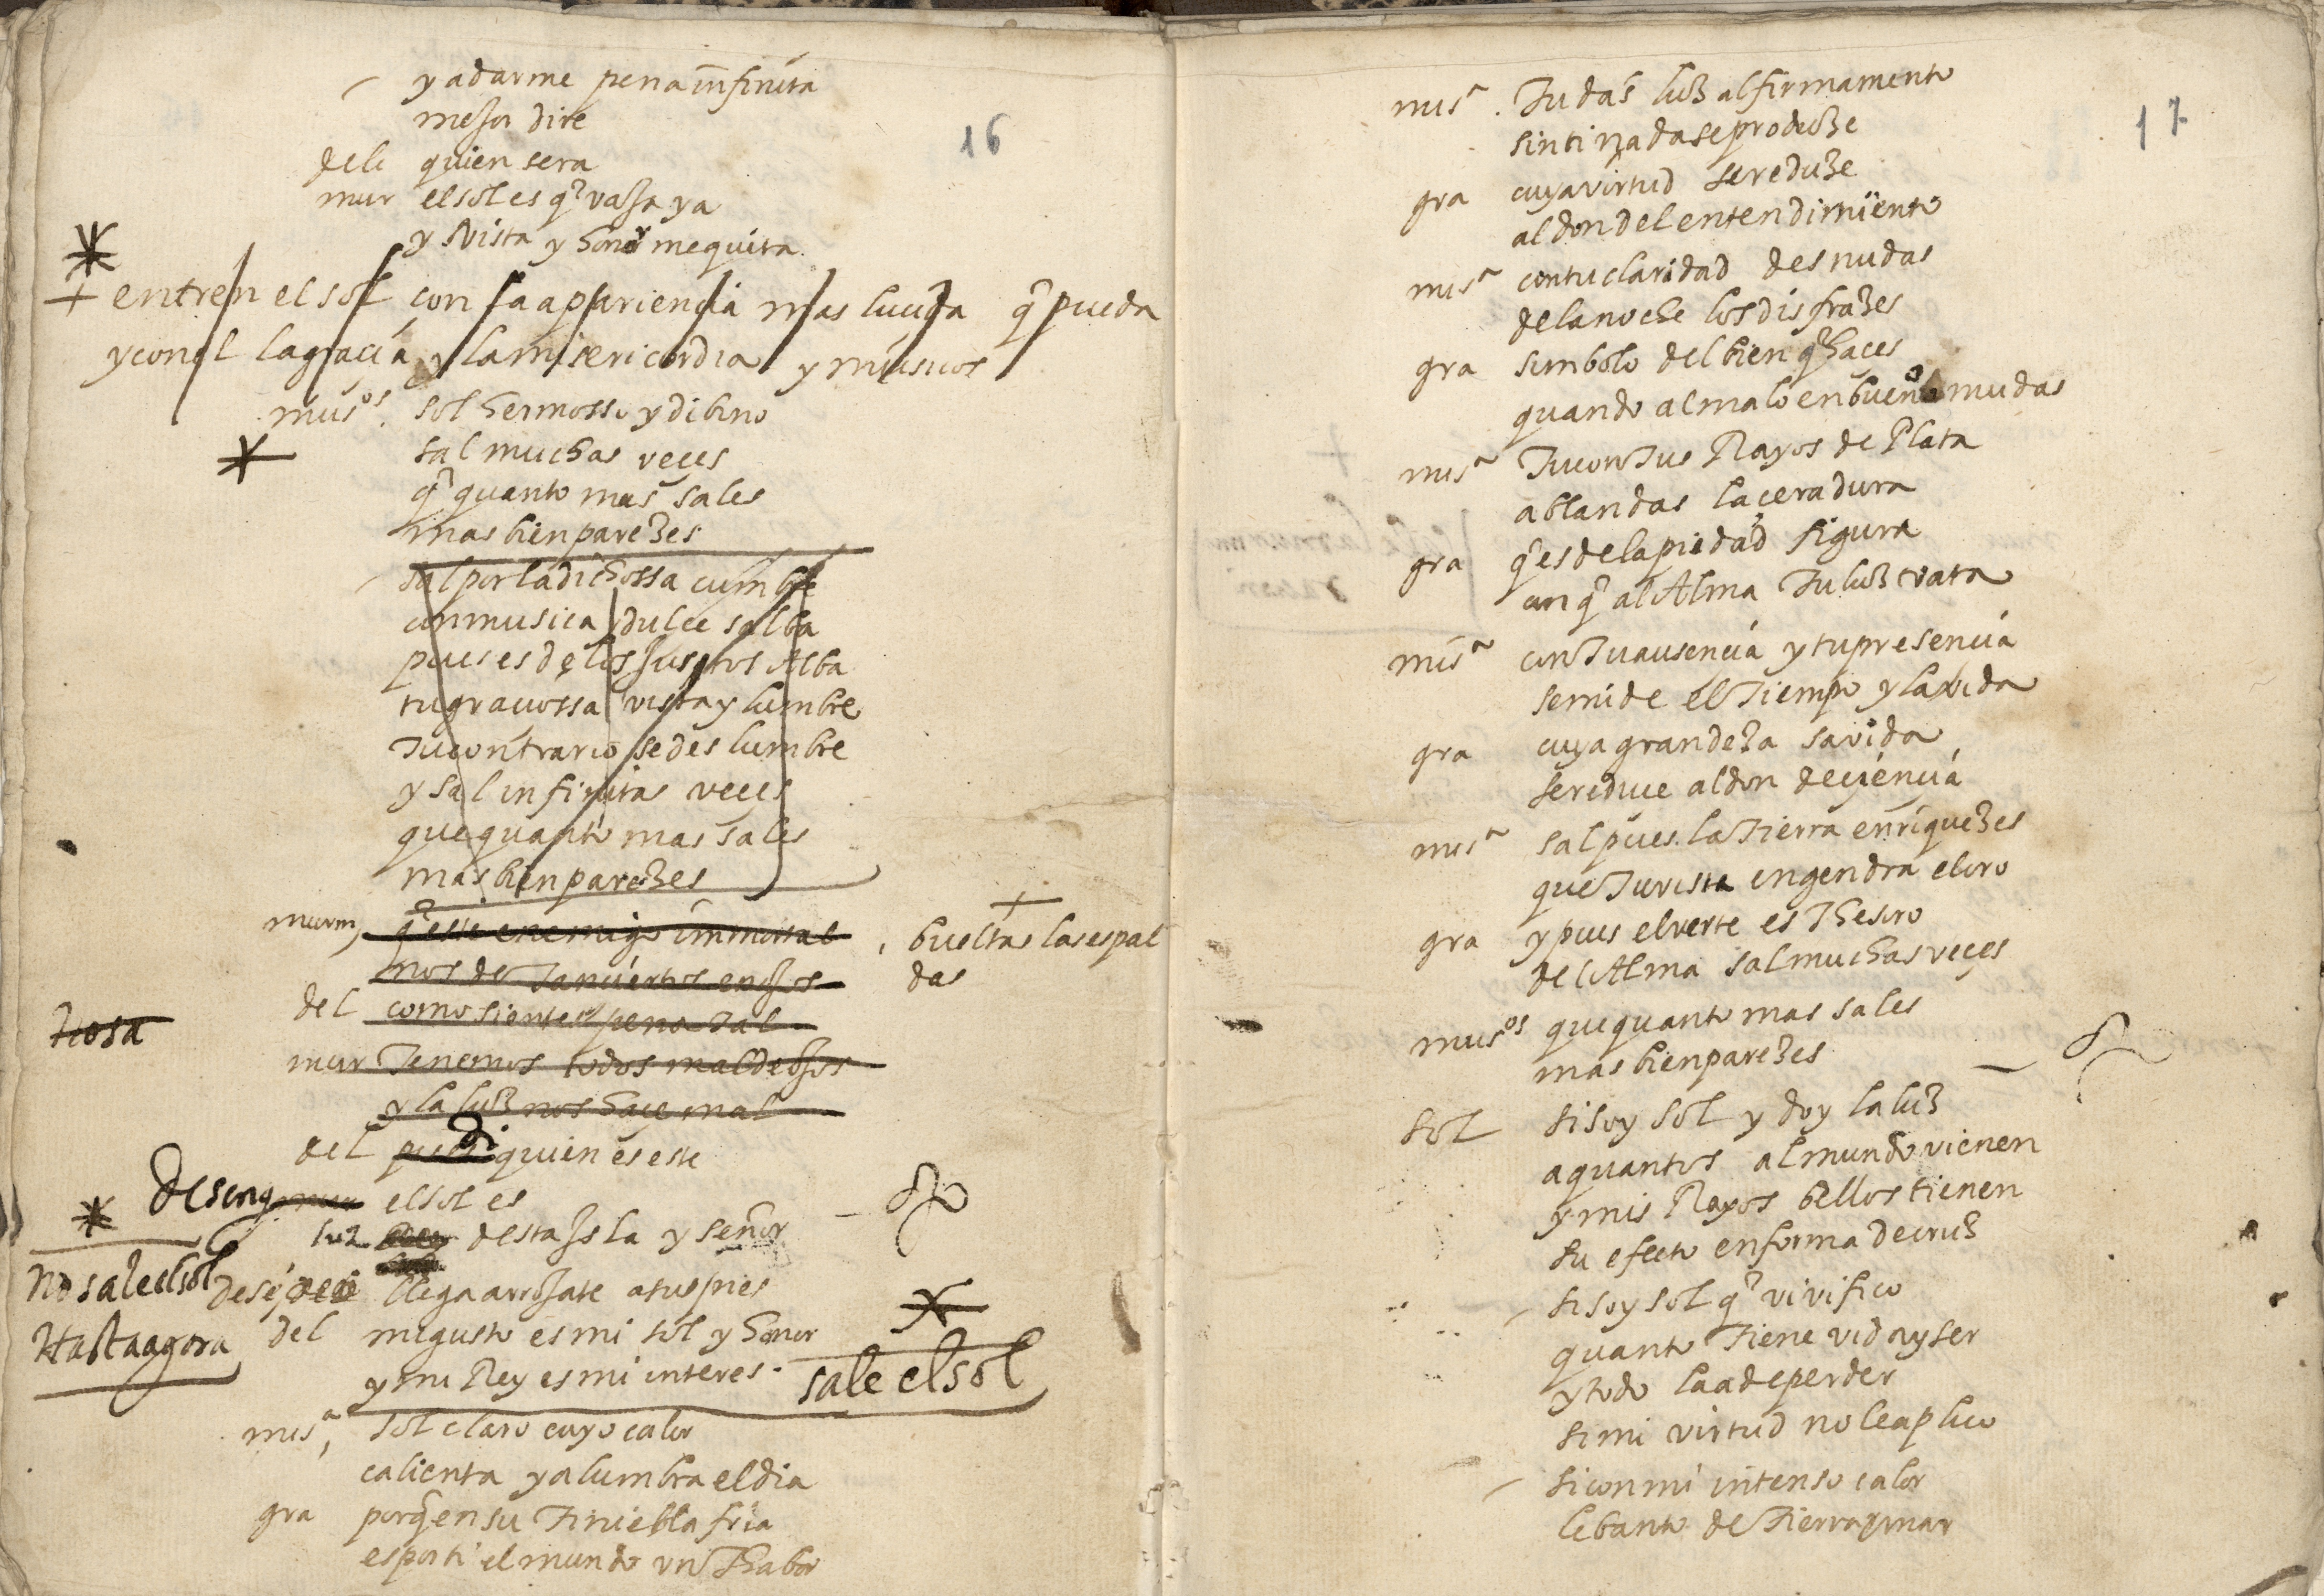 y a darme pena infinita
mejor dire
dele quien sera
mur el sol es q̃ vaja ya
y vista y honor me quita
16
entren el sol con la apariencia mas lucida q̃ pueda
y con el la gracia y la misericordia y musicos
musos. sol hermosso y dibino
sal muchas veces
q̃ quanto mas sales
mas bien pareces
sal por la dichossa cumbre
con musica y dulce salba
pues es de los justos Alba
tu graciossa vista y lumbre
Tu contrario se deslumbre
y sal infinitas veces
que quanto mas sales
mas bien parezes
murm, q̃ este enemigo inmortal
buelta las espal
das
nos de tan ciertos enojos
del como sientes pena tal
mur Tenemos todos mal de ojos
y la luz nos hace mal
del di quien es este
Deseng el sol es
luz desta Isla y señor
No sale el sol
Hasta agora
dese llega arrojate a tus pies
del mi gusto es mi sol y honor
y mi Rey es mi interes
sale el sol
misa, sol claro cuyo calor
calienta y alumbra el dia
gra porq̃ en su Tiniebla fria
es por ti el mundo vn Thabor
17
misa. Tu das luz al firmamento
sin ti nada se produze
gra cuya virtud se reduze
al don del entendimiento
misa con tu claridad desnudas
de la noche los disfrazes
gra simbolo del bien q̃ haces
quando al malo en bueno mudas
misa Tu con Tus Rayos de Plata
ablandas la cera dura
gra q̃ es de la piedad figura
con q̃ al Alma Tu luz trata
misa con Tu ausencia y tu presencia
se mide el Tiempo y la vida
gra cuya grandeza savida
se reduce al don de ciencia
misa sal pues la Tierra enriquezes
que Tu vista engendra el oro
gra y pues el verte es Thesoro
del Alma sal muchas veçes
musos que quanto mas sales
mas bien parezes
Sol si soy sol y doy la luz
a quantos al mundo vienen
y mis Rayos bellos tienen
su efecto en forma de cruz
si soy sol q̃ vivifico
quanto Tiene vida y ser
y todo la a de perder
si mi virtud no le aplico
si con mi intenso calor
lebanto de Tierra y mar